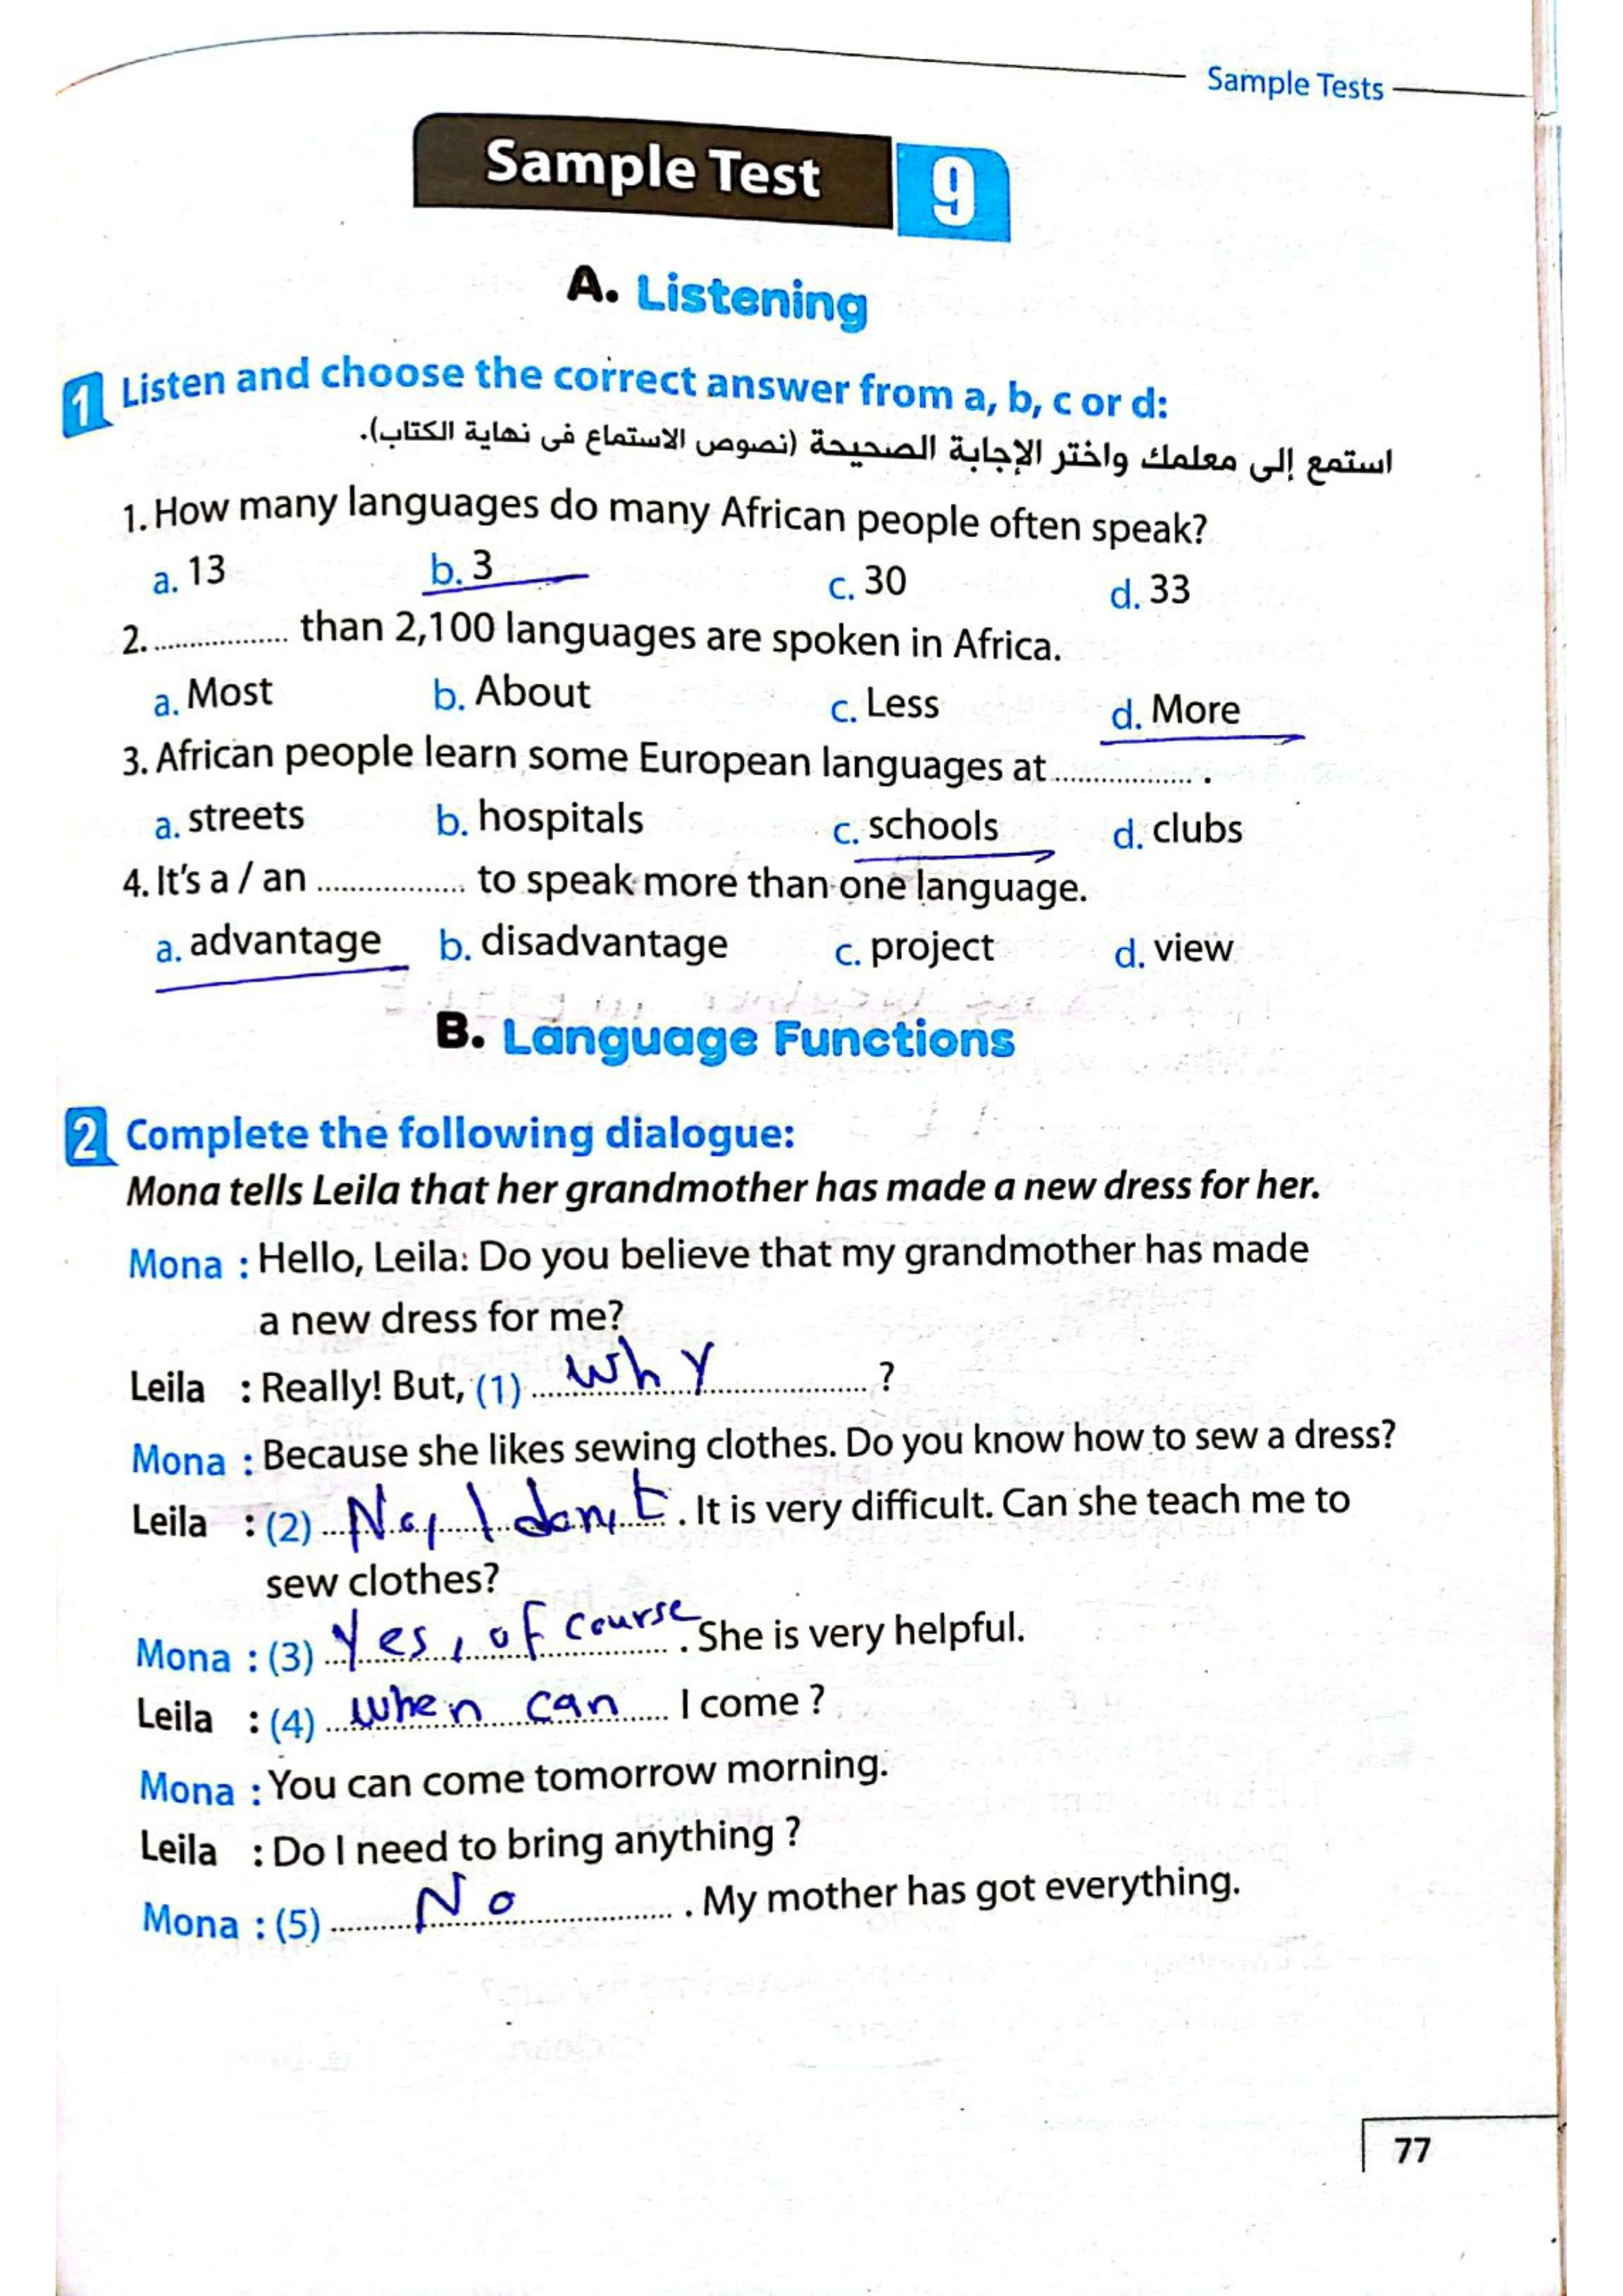 Sample Tests
Sample Test 9
A. Listening
1 Listen and choose the correct answer from a, b, c or d:
استمع إلى معلمك واختر الإجابة الصحيحة (نصوص الاستماع فى نهاية الكتاب).
1. How many languages do many African people often speak?
a. 13 b. 3 c. 30 d. 33
2. ................. than 2,100 languages are spoken in Africa.
a. Most b. About c. Less d. More
3. African people learn some European languages at ................. .
a. streets b. hospitals c. schools d. clubs
4. It's a / an ................. to speak more than one language.
a. advantage b. disadvantage c. project d. view
B. Language Functions
2 Complete the following dialogue:
Mona tells Leila that her grandmother has made a new dress for her.
Mona : Hello, Leila: Do you believe that my grandmother has made
a new dress for me?
Leila : Really! But, (1) why ?
Mona : Because she likes sewing clothes. Do you know how to sew a dress?
Leila : (2) No, I don,t . It is very difficult. Can she teach me to
sew clothes?
Mona : (3) Yes, of course . She is very helpful.
Leila : (4) when can I come ?
Mona : You can come tomorrow morning.
Leila : Do I need to bring anything ?
Mona : (5) No . My mother has got everything.
77